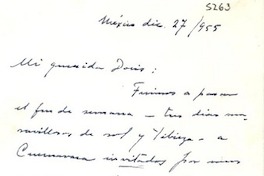 5263
México dic. 27/955
Mi querida Doris:
Fuimos a pasar
el fin de semana - tres días ma-
ravillosos de sol y tibieza - a
Cuernavaca invitados por unos